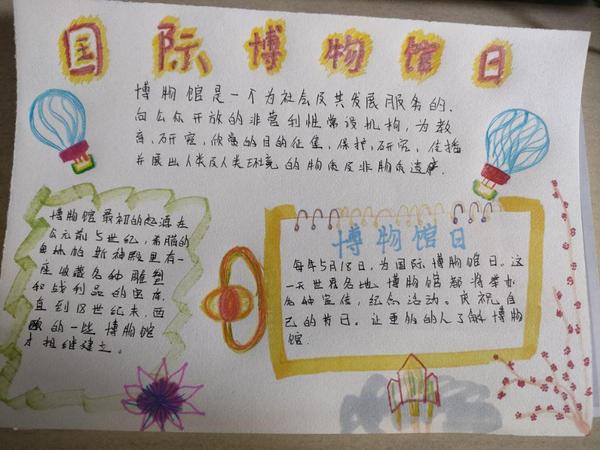 国际博物馆日
博物馆是一个为社会及其发展服务的、
向公众开放的非营利性常设机构，为教
育、研究、欣赏的目的征集、保护、研究、传播
并展出人类及人类环境的物质及非物质遗产.
博物馆最初的起源在
公元前5世纪，希腊的
奥林帕斯神殿里有一
座收藏各种雕塑
和战利品的宝库，
直到18世纪末，西
欧的一些博物馆
才相继建立。
博物馆日
每年5月18日，为国际博物馆日。这
一天世界各地博物馆都将举办
各种宣传，纪念活动。庆祝自
己的节日。让更多的人了解博物
馆.